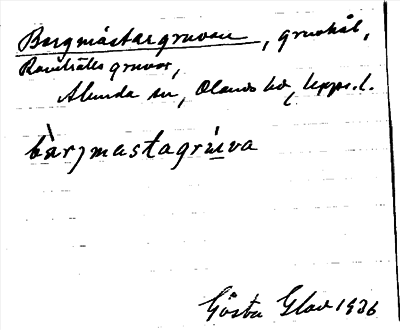 Bergmästargruvan, gruvhål,
Ramhälls gruvor,
Alunda sn, Olands hd, Upps. l.
bär̀jmastagrúva
Gösta Glad 1936